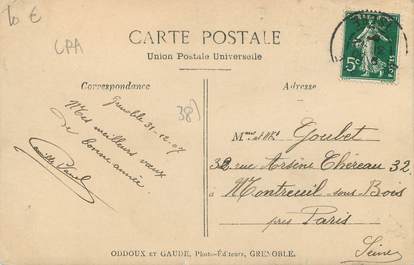 10 €
CPA
CARTE POSTALE
Union Postale Universelle
Correspondance
Adresse
5c
38)
Grenoble 31-12-07
Mes meilleurs vœux
de bonne année.
Camille
Goubet
32 rue Arsène Chéreau 32,
à Montreuil sous Bois
près Paris
Seine
ODDOUX ET GAUDE, Photo-Éditeurs, GRENOBLE.